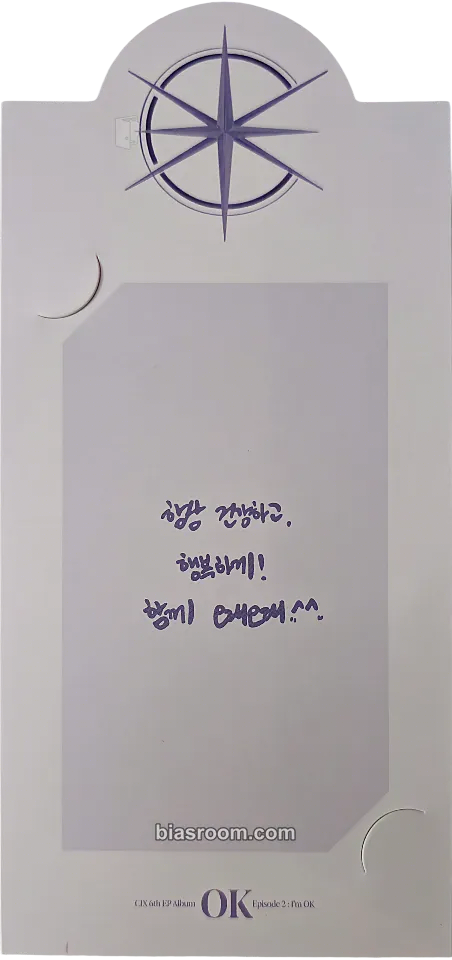 항상 건강하고,
행복하게!
함께 오래오래!^^.
biasroom.com
CIX 6th EP Album OK Episode 2 : I'm OK